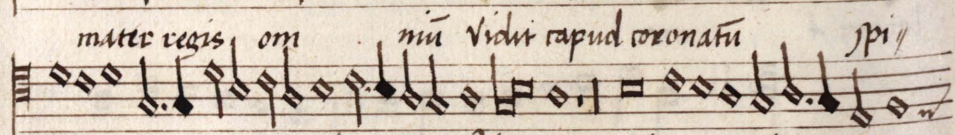 mater regis om niū Vidit capud coronatū spi